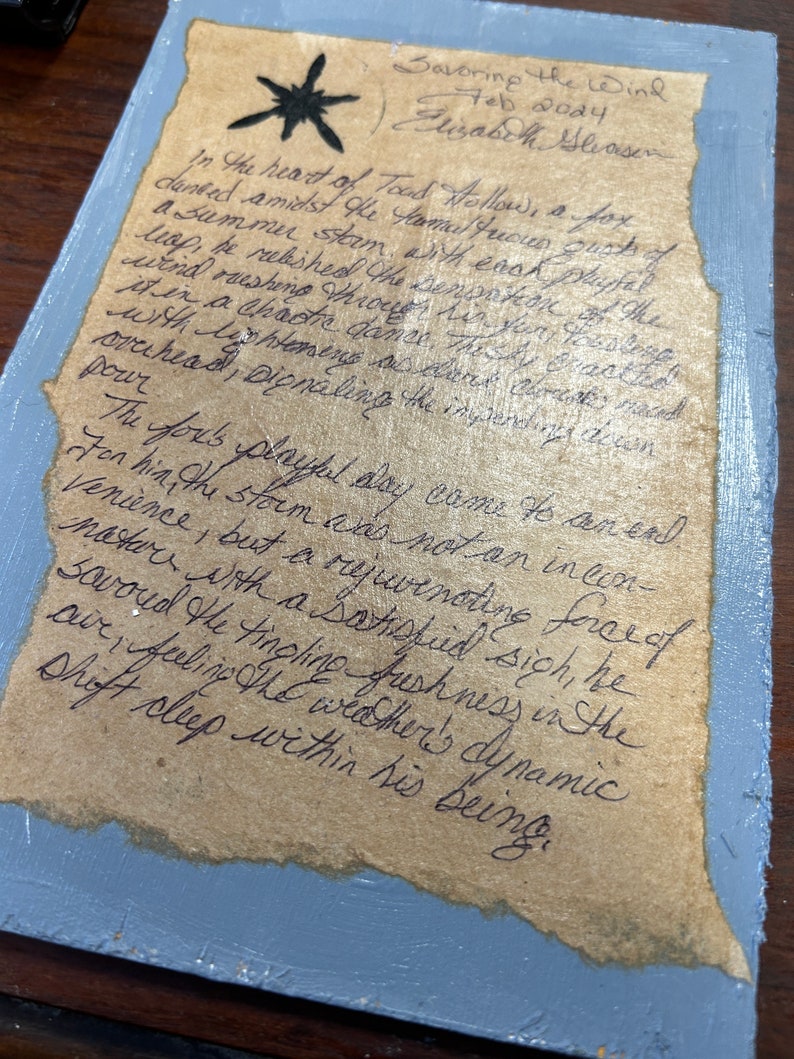 Savoring the Wind
Feb 2024
Elizabeth Gleason
In the heart of Toad Hollow, a fox
danced amidst the tumultuous gusts of
a summer storm. With each playful
leap, he relished the sensation of the
wind rushing through his fur, tousling
it in a chaotic dance. The sky crackled
with lightening as dark clouds raced
overhead, signaling the impending down
pour
The fox's playful day came to an end.
For him, the storm was not an incon-
venience, but a rejuvenating force of
nature with a satisfied sigh, he
savored the tingling freshness in the
air, feeling the weather's dynamic
shift deep within his being.